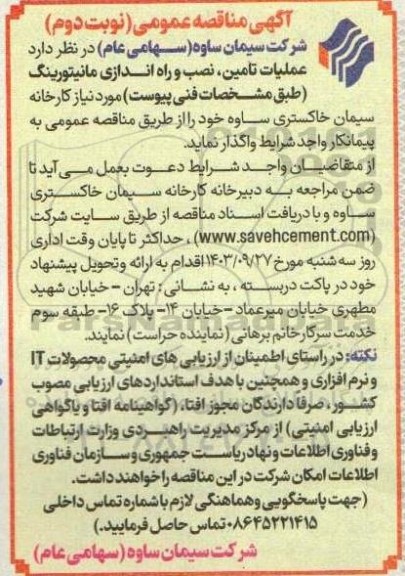 آگهی مناقصه عمومی (نوبت دوم)
شرکت سیمان ساوه (سهامی عام) در نظر دارد
عملیات تامین، نصب و راه اندازی مانیتورینگ
(طبق مشخصات فنی پیوست) مورد نیاز کارخانه
سیمان خاکستری ساوه خود را از طریق مناقصه عمومی به
پیمانکار واجد شرایط واگذار نماید.
از متقاضیان واجد شرایط دعوت بعمل می آید تا
ضمن مراجعه به دبیرخانه کارخانه سیمان خاکستری
ساوه و یا دریافت اسناد مناقصه از طریق سایت شرکت
(www.savehcement.com)، حداکثر تا پایان وقت اداری
روز سه شنبه مورخ ۱۴۰۳/۰۹/۲۷ اقدام به ارائه و تحویل پیشنهاد
خود در پاکت دربسته، به نشانی: تهران - خیابان شهید
مطهری خیابان میرعماد - خیابان ۱۴- پلاک ۱۶- طبقه سوم
خدمت سرکار خانم برهانی (نماینده حراست) نمایند.
نکته: در راستای اطمینان از ارزیابی های امنیتی محصولات IT
و نرم افزاری و همچنین با هدف استانداردهای ارزیابی مصوب
کشور، صرفا دارندگان مجوز افتا، (گواهینامه افتا و یا گواهی
ارزیابی امنیتی) از مرکز مدیریت راهبردی وزارت ارتباطات
و فناوری اطلاعات و نهاد ریاست جمهوری و سازمان فناوری
اطلاعات امکان شرکت در این مناقصه را خواهند داشت.
(جهت پاسخگویی و هماهنگی لازم با شماره تماس داخلی
۰۸۶۴۵۲۲۱۴۱۵ تماس حاصل فرمایید.)
شرکت سیمان ساوه (سهامی عام)